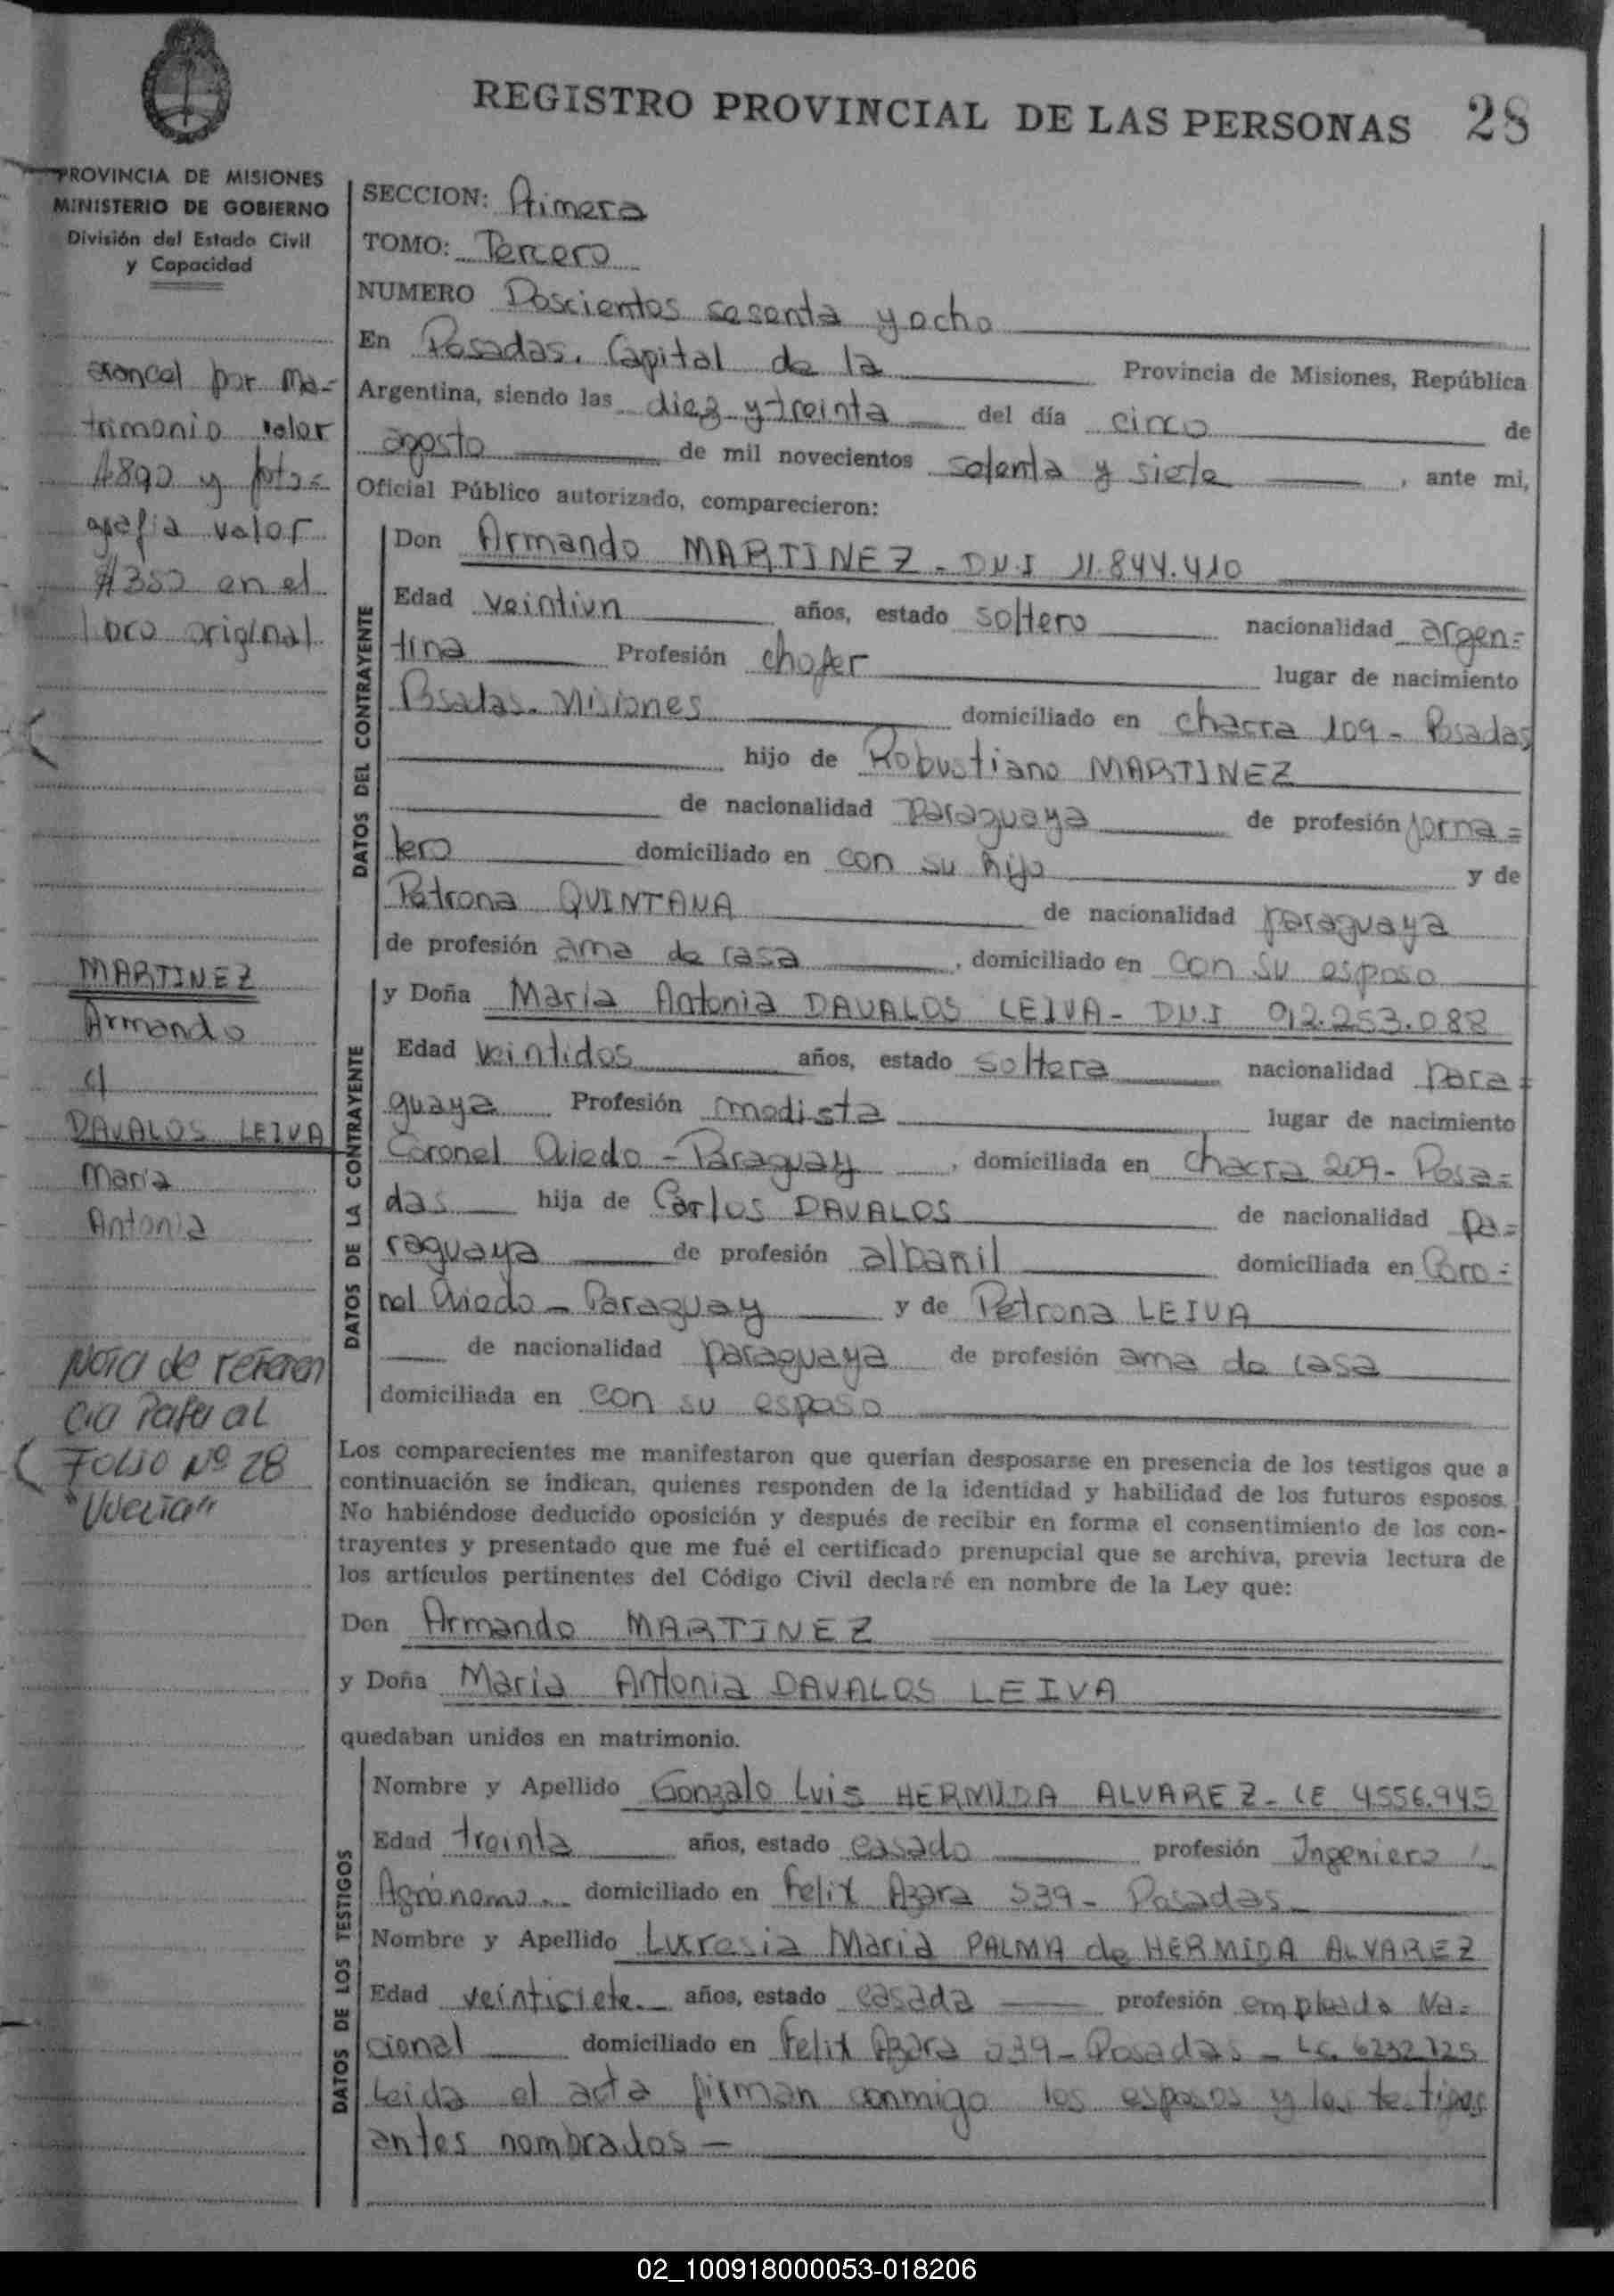 REGISTRO PROVINCIAL DE LAS PERSONAS 28
PROVINCIA DE MISIONES
MINISTERIO DE GOBIERNO
División del Estado Civil
y Capacidad
SECCION: Primera
TOMO: Tercero
NUMERO Doscientos sesenta y ocho
En Posadas. Capital de la Provincia de Misiones, República
Argentina, siendo las diez y treinta del día cinco de
agosto de mil novecientos setenta y siete, ante mi,
Oficial Público autorizado, comparecieron:
arancel por ma=
trimonio valor
$890 y foto=
grafia valor
$350 en el
libro original
DATOS DEL CONTRAYENTE
Don Armando MARTINEZ - DNI 11.844.410
Edad veintiun años, estado soltero nacionalidad argen=
tina Profesión chofer lugar de nacimiento
Posadas. Misiones domiciliado en chacra 109 - Posadas
hijo de Robustiano MARTINEZ
de nacionalidad paraguaya de profesión jorna=
lero domiciliado en con su hijo y de
Petrona QUINTANA de nacionalidad paraguaya
de profesión ama de casa, domiciliado en con su esposo
MARTINEZ
Armando
c/
DAVALOS LEIVA
Maria
Antonia
DATOS DE LA CONTRAYENTE
y Doña Maria Antonia DAVALOS LEIVA - DNI 92.253.088
Edad veintidos años, estado soltera nacionalidad para=
guaya Profesión modista lugar de nacimiento
Coronel Oviedo - Paraguay, domiciliada en chacra 209 - Posa=
das hija de Carlos DAVALOS de nacionalidad pa=
raguaya de profesión albanil domiciliada en Coro=
nel Oviedo - Paraguay y de Petrona LEIVA
de nacionalidad paraguaya de profesión ama de casa
domiciliada en con su esposo
Nota de referen
cia Pasa al
Folio Nº 28
"Vuelta"
Los comparecientes me manifestaron que querían desposarse en presencia de los testigos que a
continuación se indican, quienes responden de la identidad y habilidad de los futuros esposos.
No habiéndose deducido oposición y después de recibir en forma el consentimiento de los con-
trayentes y presentado que me fué el certificado prenupcial que se archiva, previa lectura de
los artículos pertinentes del Código Civil declaré en nombre de la Ley que:
Don Armando MARTINEZ
y Doña Maria Antonia DAVALOS LEIVA
quedaban unidos en matrimonio.
DATOS DE LOS TESTIGOS
Nombre y Apellido Gonzalo Luis HERMIDA ALVAREZ - LE 4556.945
Edad treinta años, estado casado profesión Ingeniero
Agronomo. domiciliado en Felix Azara 539 - Posadas
Nombre y Apellido Lucresia Maria PALMA de HERMIDA ALVAREZ
Edad veinticiete años, estado casada profesión empleada Na=
cional domiciliado en Felix Azara 539 - Posadas - LC. 6232725
Leida el acta firman conmigo los esposos y los testigos
antes nombrados —
02_100918000053-018206